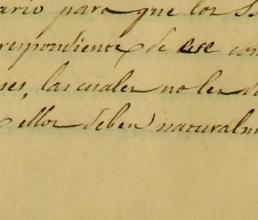 ario para que los S
respondiente de ese con
nes, las cuales no les d
ellos deben naturalm